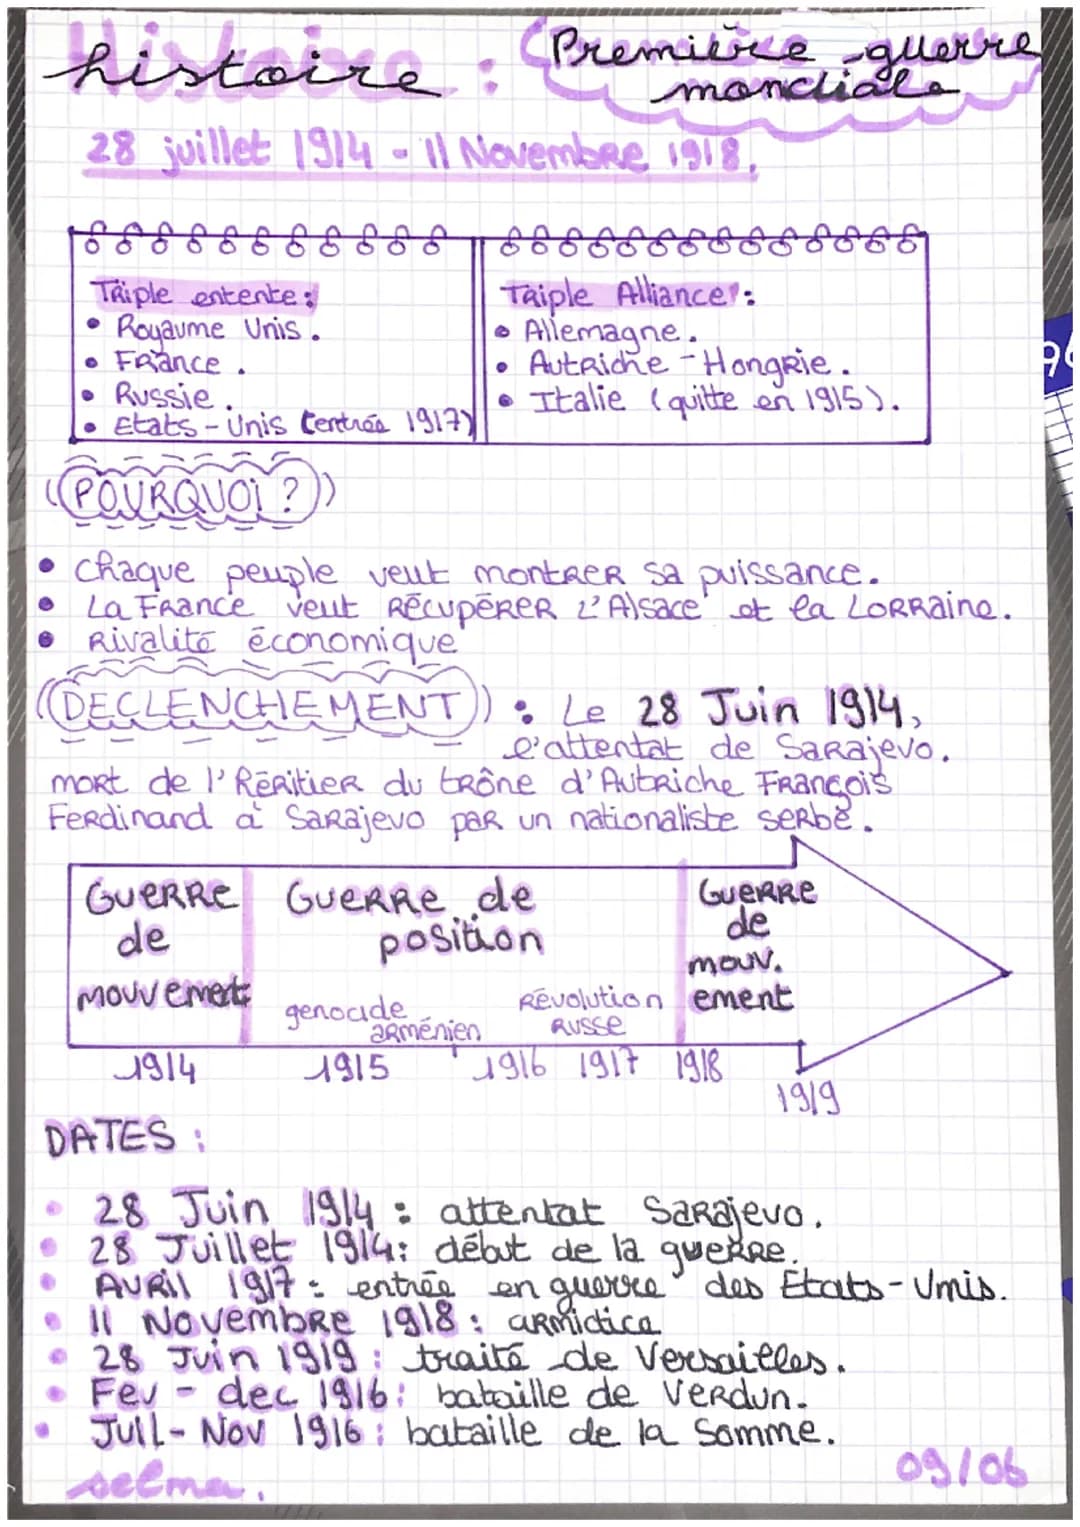 histoire : Première guerre
mondiale
28 juillet 1914 - 11 Novembre 1918.
Triple entente :
• Royaume Unis.
• France.
• Russie.
• Etats-Unis (entrée 1917)
Triple Alliance :
• Allemagne.
• Autriche - Hongrie.
• Italie (quitte en 1915).
POURQUOI ?
• chaque peuple veut montrer sa puissance.
• La France veut récupérer l'Alsace et la Lorraine.
• Rivalité économique
DECLENCHEMENT : Le 28 Juin 1914,
l'attentat de Sarajevo.
mort de l'héritier du trône d'Autriche François
Ferdinand à Sarajevo par un nationaliste serbe.
Guerre
de
mouvement
Guerre de
position
genocide
arménien
Révolution
Russe
Guerre
de
mouv.
ement
1914 1915 1916 1917 1918
1919
DATES :
• 28 Juin 1914 : attentat Sarajevo.
• 28 Juillet 1914 : début de la guerre.
• Avril 1917 : entrée en guerre des Etats-Unis.
• 11 Novembre 1918 : armictice
• 28 Juin 1919 : traité de Versailles.
• Fev - dec 1916 : bataille de Verdun.
• Juil - Nov 1916 : bataille de la Somme.
selma.
09/06
96